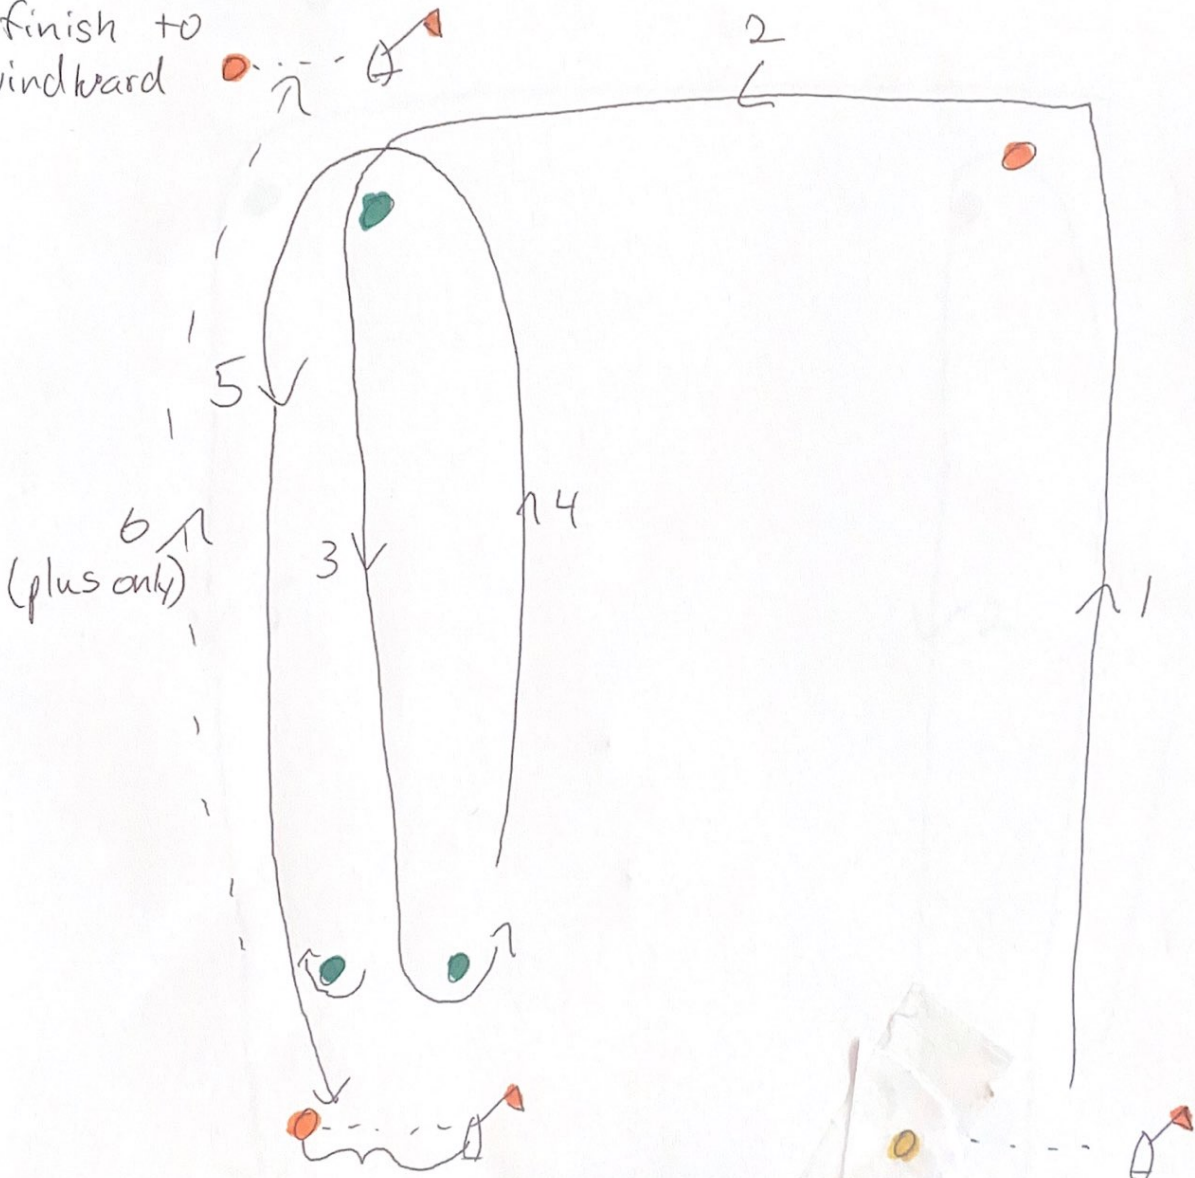 finish to
windward
2
5
6
(plus only)
3
4
1